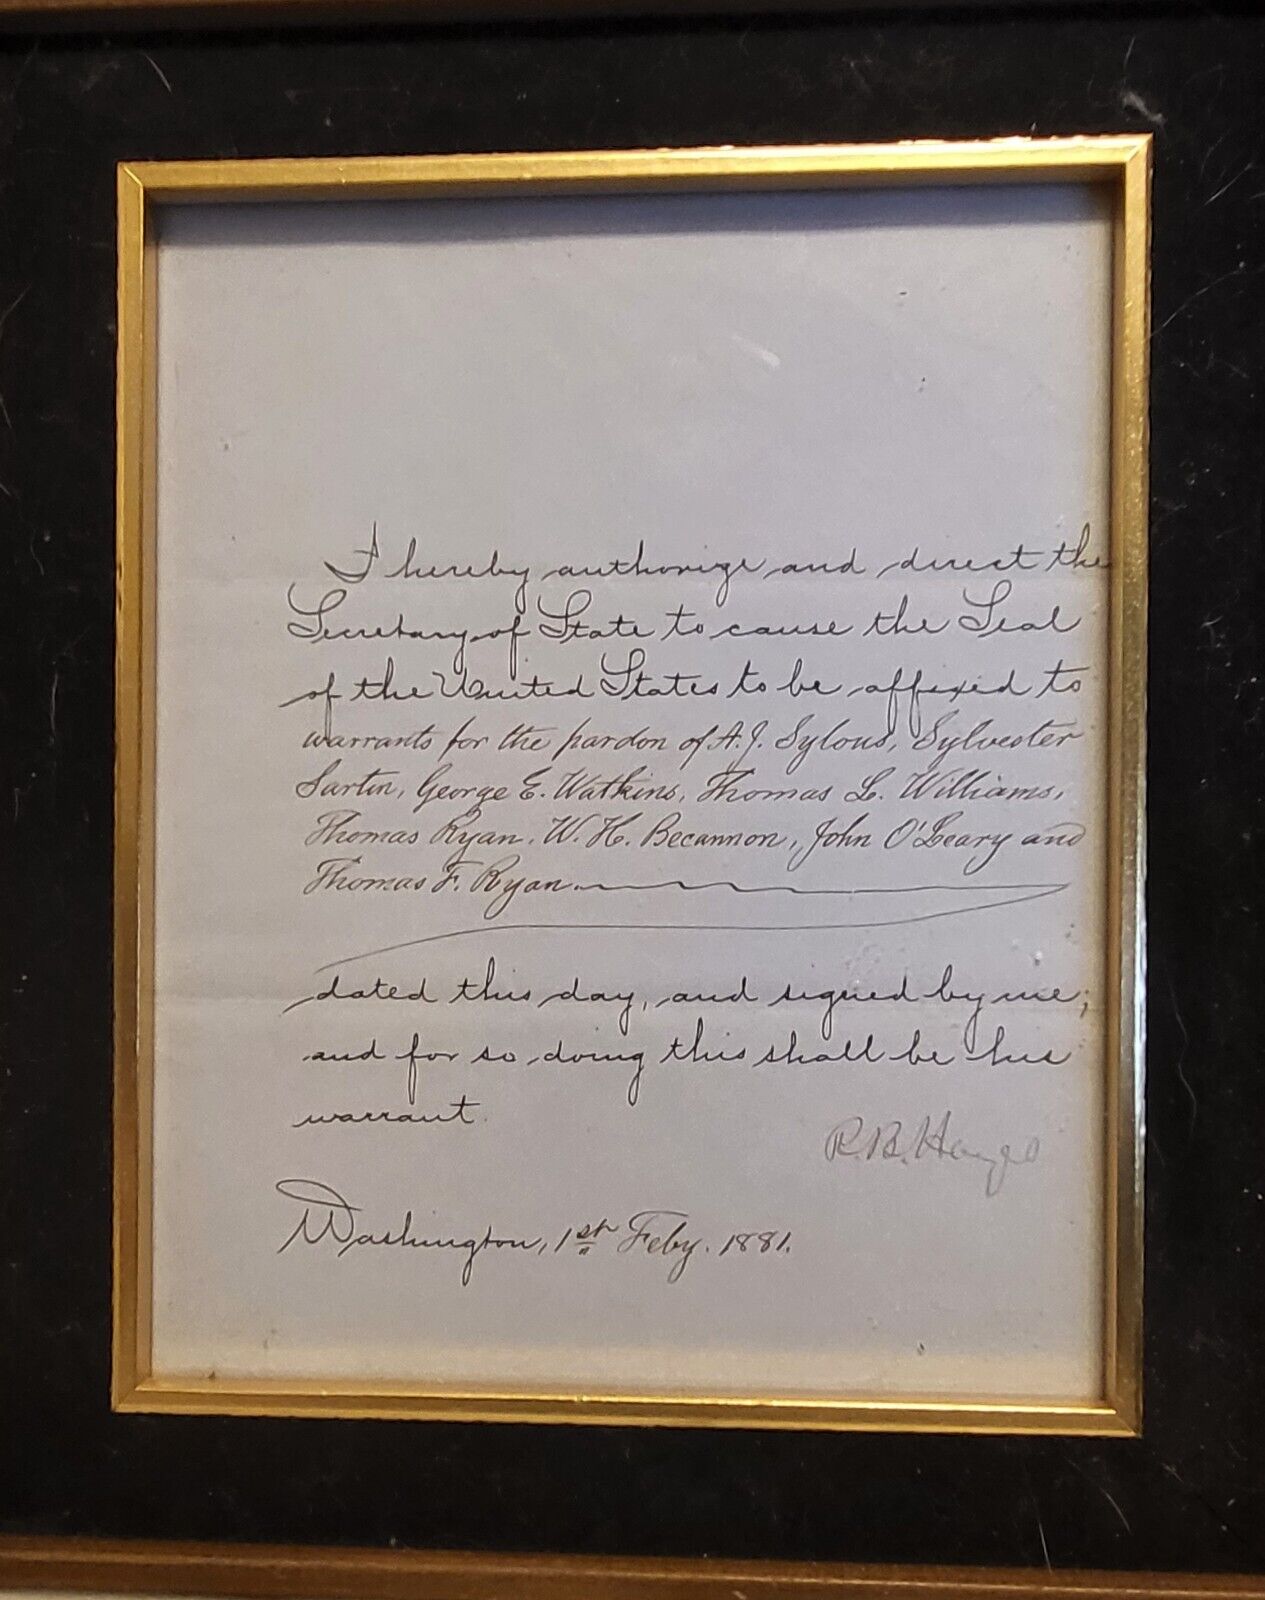 I hereby authorize and direct the
Secretary of State to cause the Seal
of the United States to be affixed to
warrants for the pardon of A. J. Sylous, Sylvester
Sartin, George E. Watkins, Thomas L. Williams,
Thomas Ryan, W. H. Becannon, John O'Leary and
Thomas F. Ryan.
dated this day, and signed by me;
and for so doing this shall be his
warrant.
R. B. Hayes
Washington, 1st Feby. 1881.